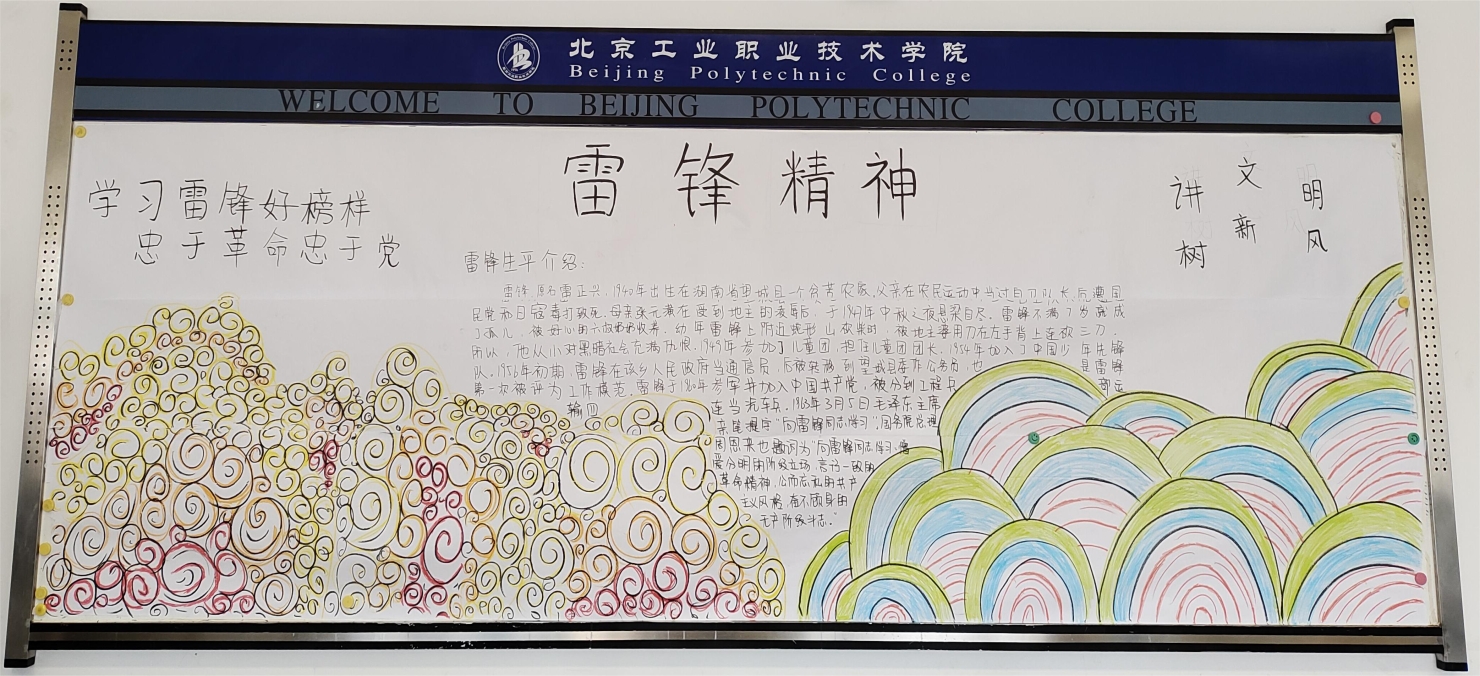 北京工业职业技术学院
Beijing Polytechnic College
WELCOME TO BEIJING POLYTECHNIC COLLEGE
雷锋精神
学习雷锋好榜样
忠于革命忠于党
讲文明
树新风
雷锋生平介绍:
雷锋,原名雷正兴,1940年出生在湖南省望城县一个贫苦农家,父亲在农民运动中当过自卫队长,后遭国
民党和日寇毒打致死.母亲张元满在受到地主的凌辱后,于1947年中秋之夜悬梁自尽.雷锋不满7岁就成
了孤儿,被好心的六叔奶奶收养.幼年雷锋上附近蛇形山砍柴时,被地主婆用刀在左手背上连砍三刀.
所以,他从小对黑暗社会充满仇恨.1949年参加了儿童团,担任儿童团团长.1954年加入了中国少年先锋
队.1956年初期,雷锋在该乡人民政府当通信员,后被安排到望城县委作公务员,也是雷锋
第一次被评为工作模范.雷锋于1960年参军并加入中国共产党,被分到工程兵部运
输四连当汽车兵.1963年3月5日毛泽东主席
亲笔题写“向雷锋同志学习”.国务院总理
周恩来也题词为“向雷锋同志学习,
爱分明的阶级立场,言行一致的
革命精神,公而忘私的共产
主义风格,奋不顾身的
无产阶级斗志.”